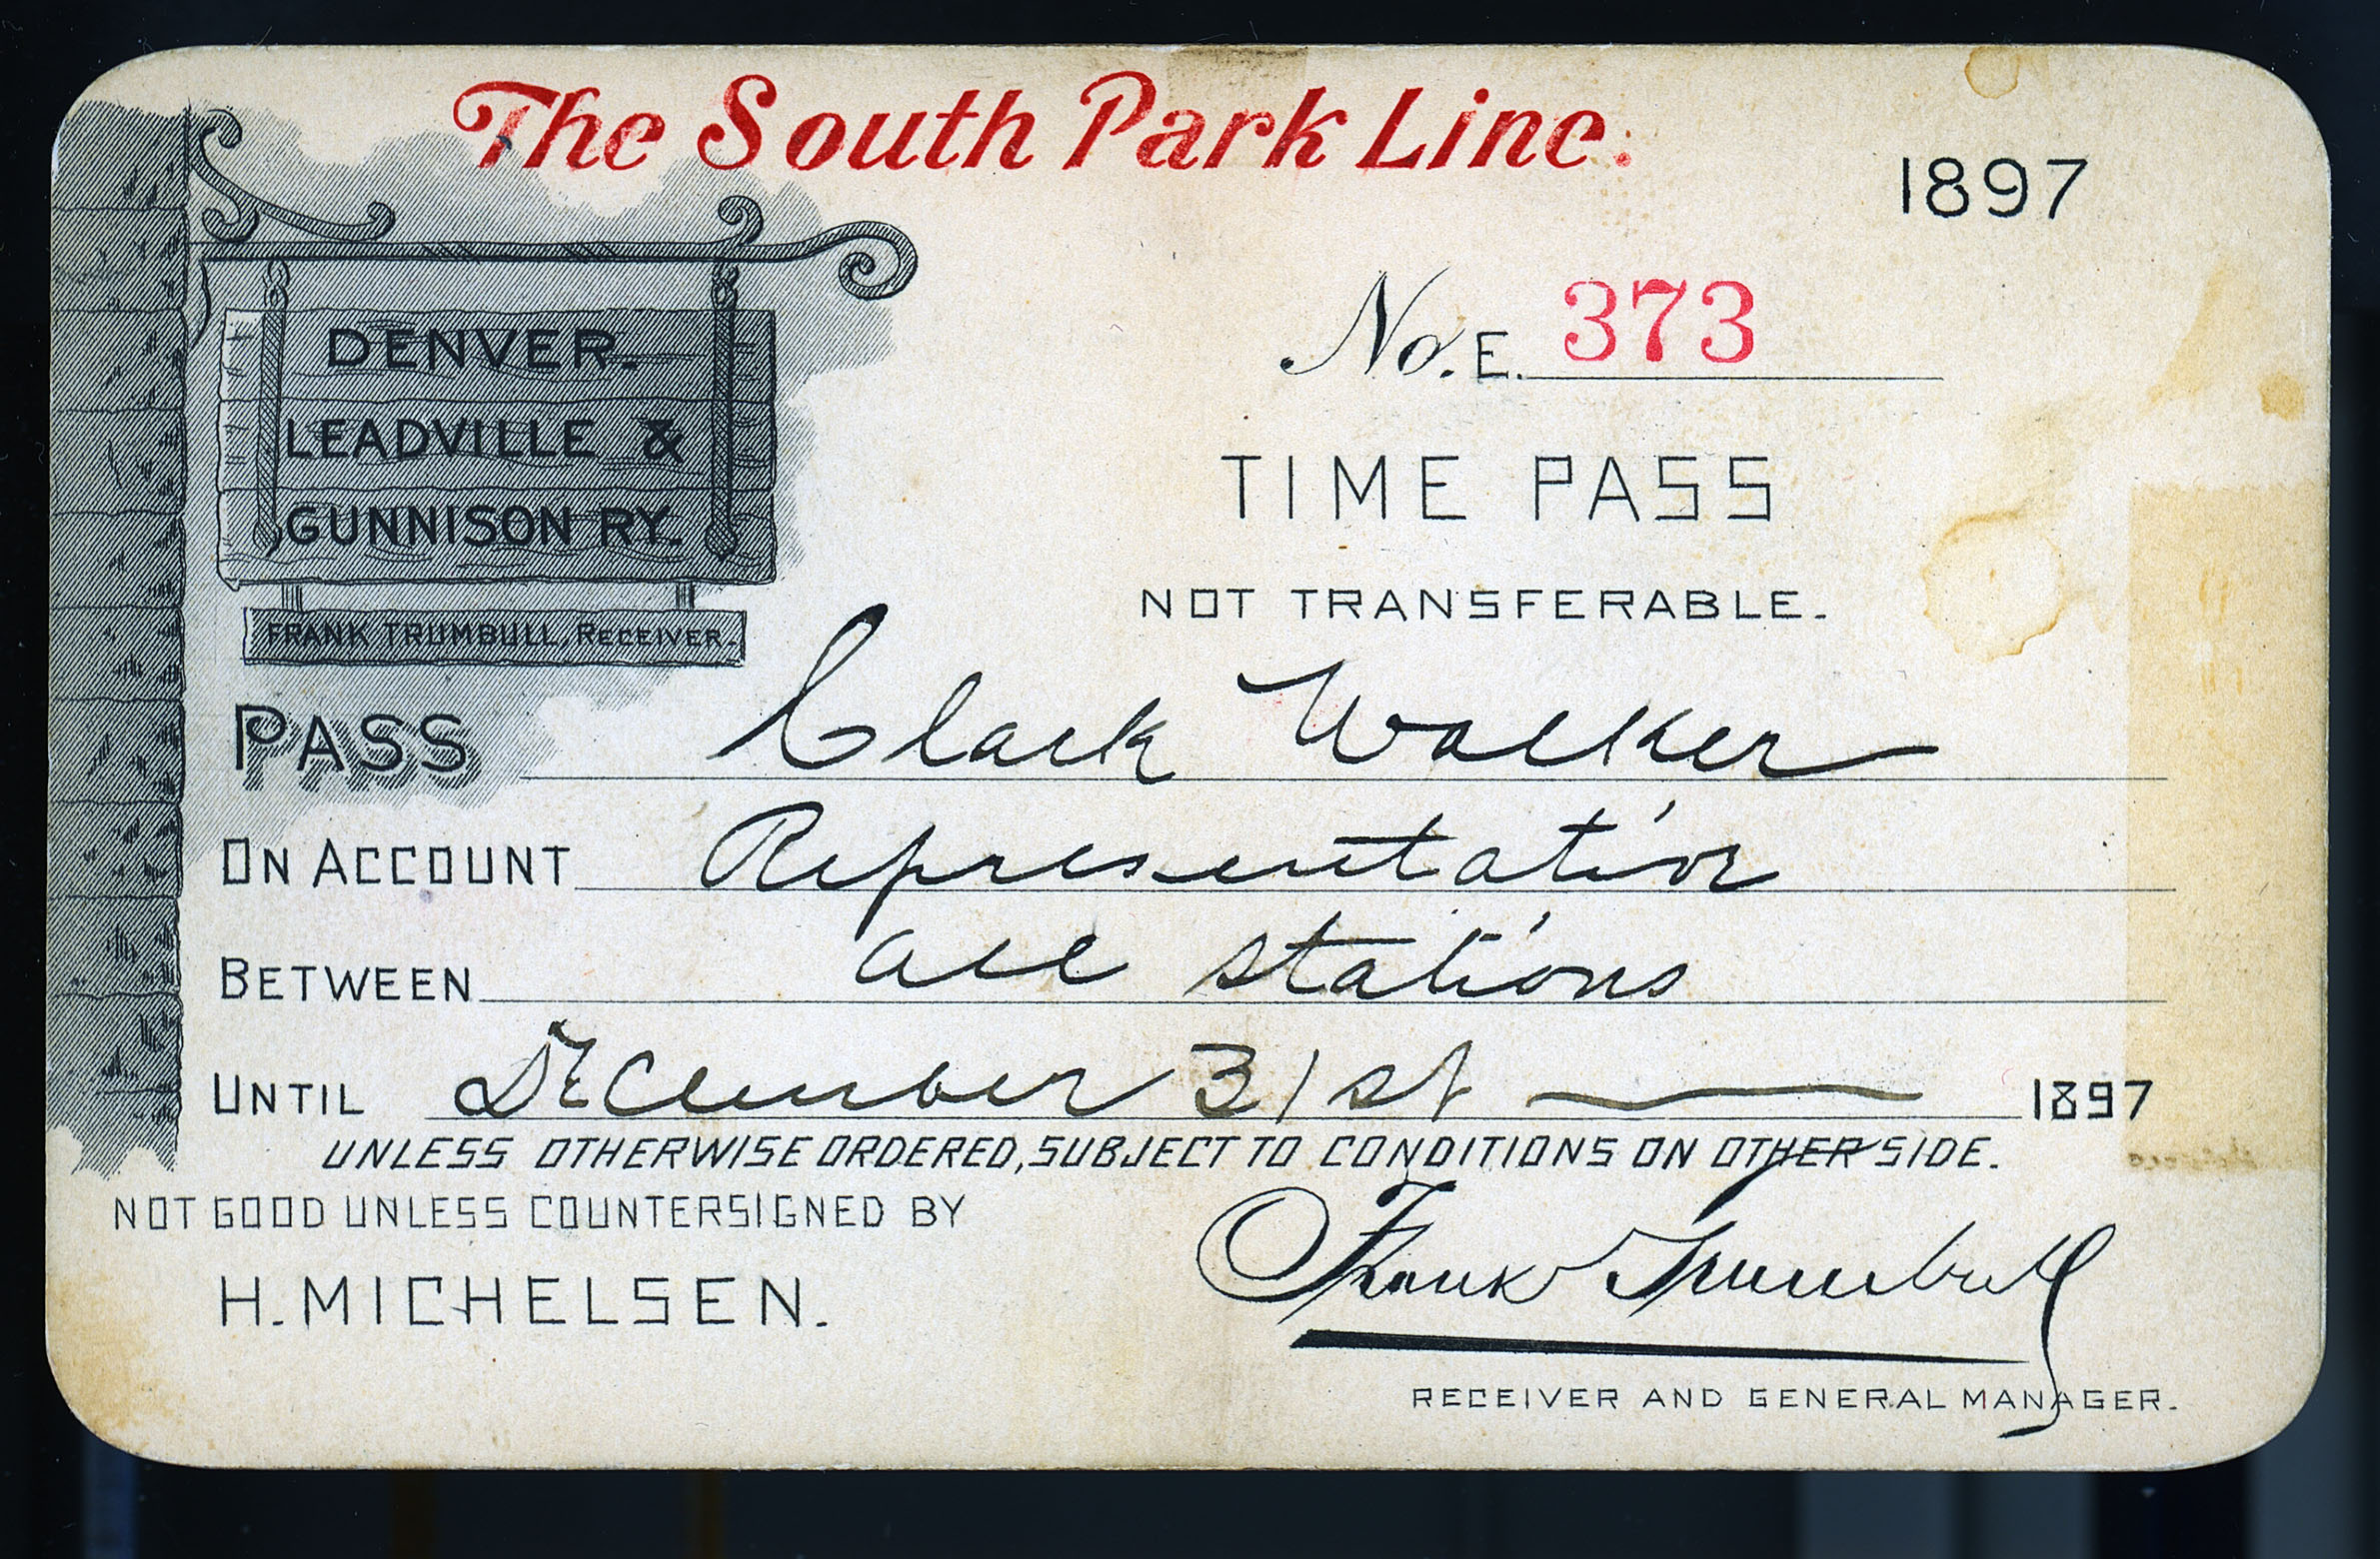 The South Park Line.
1897
DENVER.
LEADVILLE &
GUNNISON RY.
FRANK TRUMBULL, RECEIVER.
No. E. 373
TIME PASS
NOT TRANSFERABLE.
PASS Clark Walker
ON ACCOUNT Representative
BETWEEN all stations
UNTIL December 31st 1897
UNLESS OTHERWISE ORDERED, SUBJECT TO CONDITIONS ON OTHER SIDE.
NOT GOOD UNLESS COUNTERSIGNED BY
H. MICHELSEN.
Frank Trumbull
RECEIVER AND GENERAL MANAGER.